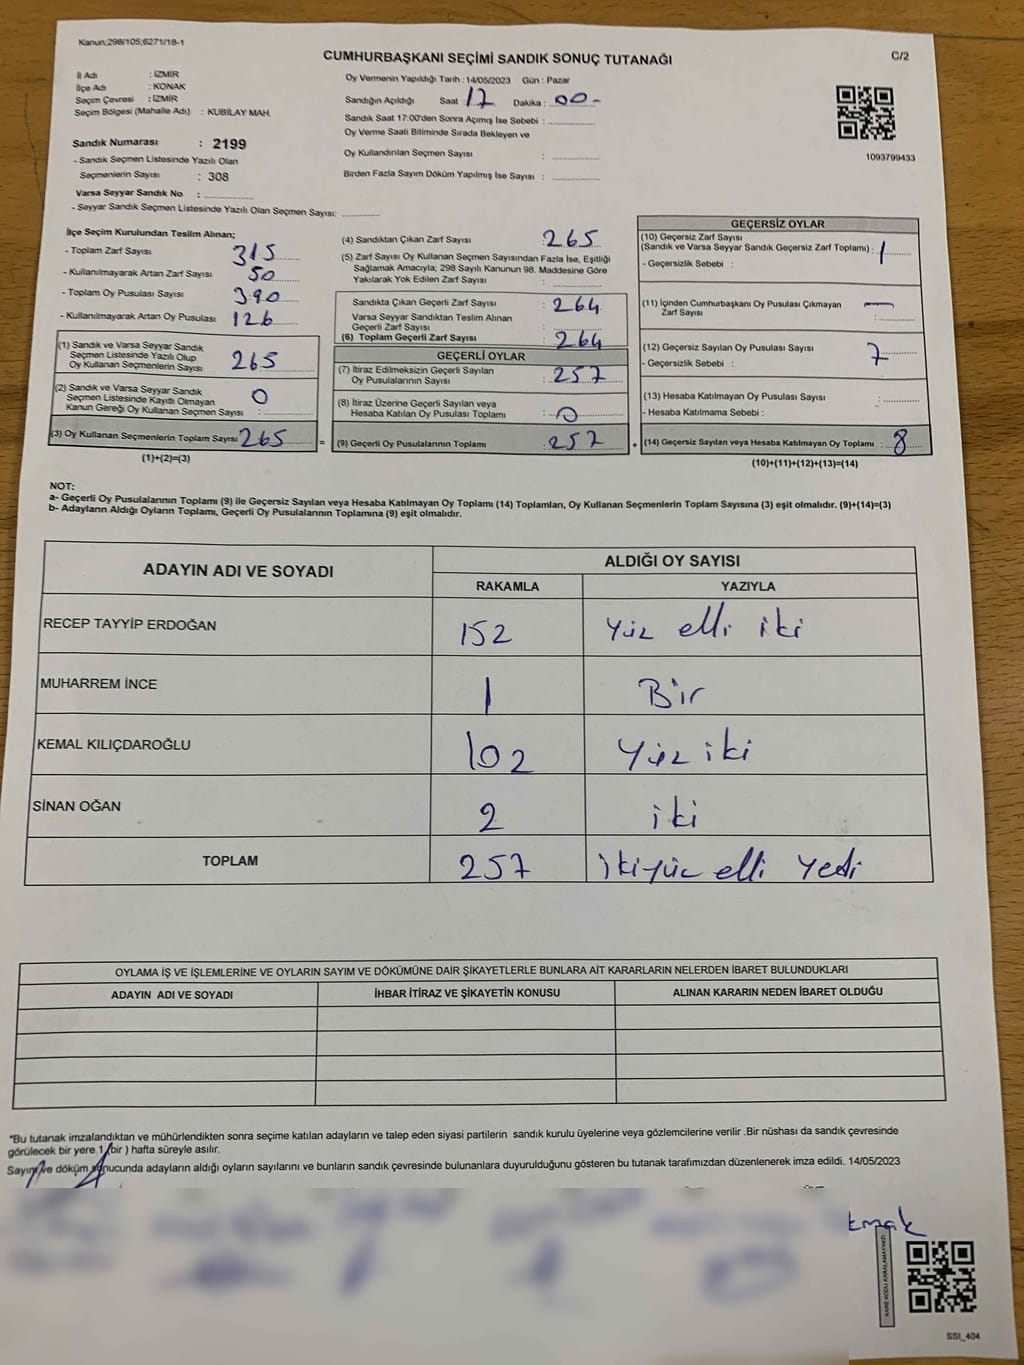 Kanun;298/105;6271/18-1
C/2
CUMHURBAŞKANI SEÇİMİ SANDIK SONUÇ TUTANAĞI
İl Adı : İZMİR
İlçe Adı : KONAK
Seçim Çevresi : İZMİR
Seçim Bölgesi (Mahalle Adı) : KUBİLAY MAH.
Sandık Numarası : 2199
- Sandık Seçmen Listesinde Yazılı Olan
Seçmenlerin Sayısı : 308
Varsa Seyyar Sandık No : ..............
- Seyyar Sandık Seçmen Listesinde Yazılı Olan Seçmen Sayısı: ............
Oy Vermenin Yapıldığı Tarih : 14/05/2023 Gün : Pazar
Sandığın Açıldığı Saat : 17 Dakika : 00-
Sandık Saat 17:00'den Sonra Açımış İse Sebebi : ..............
Oy Verme Saati Bitiminde Sırada Bekleyen ve
Oy Kullandırılan Seçmen Sayısı : ..............
Birden Fazla Sayım Döküm Yapılmış İse Sayısı : ..............
1093799433
İlçe Seçim Kurulundan Teslim Alınan;
- Toplam Zarf Sayısı 315
- Kullanılmayarak Artan Zarf Sayısı : 50
- Toplam Oy Pusulası Sayısı : 390
- Kullanılmayarak Artan Oy Pusulası 126
(1) Sandık ve Varsa Seyyar Sandık
Seçmen Listesinde Yazılı Olup
Oy Kullanan Seçmenlerin Sayısı 265
(2) Sandık ve Varsa Seyyar Sandık
Seçmen Listesinde Kayıtlı Olmayan
Kanun Gereği Oy Kullanan Seçmen Sayısı : 0
(3) Oy Kullanan Seçmenlerin Toplam Sayısı 265 =
(1)+(2)=(3)
(4) Sandıktan Çıkan Zarf Sayısı : 265
(5) Zarf Sayısı Oy Kullanan Seçmen Sayısından Fazla İse, Eşitliği
Sağlamak Amacıyla; 298 Sayılı Kanunun 98. Maddesine Göre
Yakılarak Yok Edilen Zarf Sayısı : ..............
Sandıkta Çıkan Geçerli Zarf Sayısı : 264
Varsa Seyyar Sandıktan Teslim Alınan
Geçerli Zarf Sayısı : ..............
(6) Toplam Geçerli Zarf Sayısı : 264
GEÇERLİ OYLAR
(7) İtiraz Edilmeksizin Geçerli Sayılan
Oy Pusulalarının Sayısı : 257
(8) İtiraz Üzerine Geçerli Sayılan veya
Hesaba Katılan Oy Pusulası Toplamı : 0
(9) Geçerli Oy Pusulalarının Toplamı : 257 +
GEÇERSİZ OYLAR
(10) Geçersiz Zarf Sayısı
(Sandık ve Varsa Seyyar Sandık Geçersiz Zarf Toplamı) : 1
- Geçersizlik Sebebi :
(11) İçinden Cumhurbaşkanı Oy Pusulası Çıkmayan
Zarf Sayısı : —
(12) Geçersiz Sayılan Oy Pusulası Sayısı : 7
- Geçersizlik Sebebi :
(13) Hesaba Katılmayan Oy Pusulası Sayısı : ..............
- Hesaba Katılmama Sebebi :
(14) Geçersiz Sayılan veya Hesaba Katılmayan Oy Toplamı : 8
(10)+(11)+(12)+(13)=(14)
NOT:
a- Geçerli Oy Pusulalarının Toplamı (9) ile Geçersiz Sayılan veya Hesaba Katılmayan Oy Toplamı (14) Toplamları, Oy Kullanan Seçmenlerin Toplam Sayısına (3) eşit olmalıdır. (9)+(14)=(3)
b- Adayların Aldığı Oyların Toplamı, Geçerli Oy Pusulalarının Toplamına (9) eşit olmalıdır.
ADAYIN ADI VE SOYADI ALDIĞI OY SAYISI
RAKAMLA YAZIYLA
RECEP TAYYİP ERDOĞAN 152 Yüz elli iki
MUHARREM İNCE 1 Bir
KEMAL KILIÇDAROĞLU 102 Yüz iki
SİNAN OĞAN 2 iki
TOPLAM 257 ikiyüz elli Yedi
OYLAMA İŞ VE İŞLEMLERİNE VE OYLARIN SAYIM VE DÖKÜMÜNE DAİR ŞİKAYETLERLE BUNLARA AİT KARARLARIN NELERDEN İBARET BULUNDUKLARI
ADAYIN ADI VE SOYADI İHBAR İTİRAZ VE ŞİKAYETİN KONUSU ALINAN KARARIN NEDEN İBARET OLDUĞU
*Bu tutanak imzalandıktan ve mühürlendikten sonra seçime katılan adayların ve talep eden siyasi partilerin sandık kurulu üyelerine veya gözlemcilerine verilir .Bir nüshası da sandık çevresinde
görülecek bir yere 1 (bir ) hafta süreyle asılır.
Sayım ve döküm sonucunda adayların aldığı oyların sayılarını ve bunların sandık çevresinde bulunanlara duyurulduğunu gösteren bu tutanak tarafımızdan düzenlenerek imza edildi. 14/05/2023
KARE KODU KARALAMAYINIZ!
SSI_404